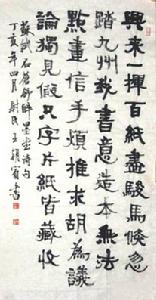 興來一揮百紙盡駿馬倏忽
踏九州我書意造本無法
點畫信手煩推求胡為議
論獨見假只字片紙皆藏收
蘇軾石蒼舒醉墨堂詩句
丁亥年四月
書